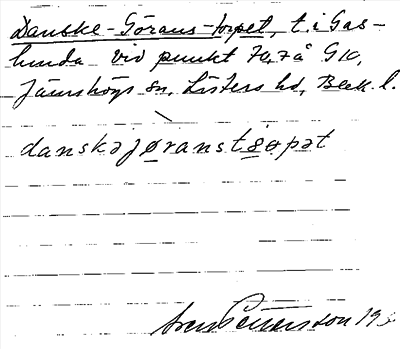 Danske-Görans-torpet, t. i Gas-
lunda vid punkt 70,7 å GK,
Jämshögs sn, Listers hd, Blek. l.
danskajøranstɷpət
Sven Petersson 193